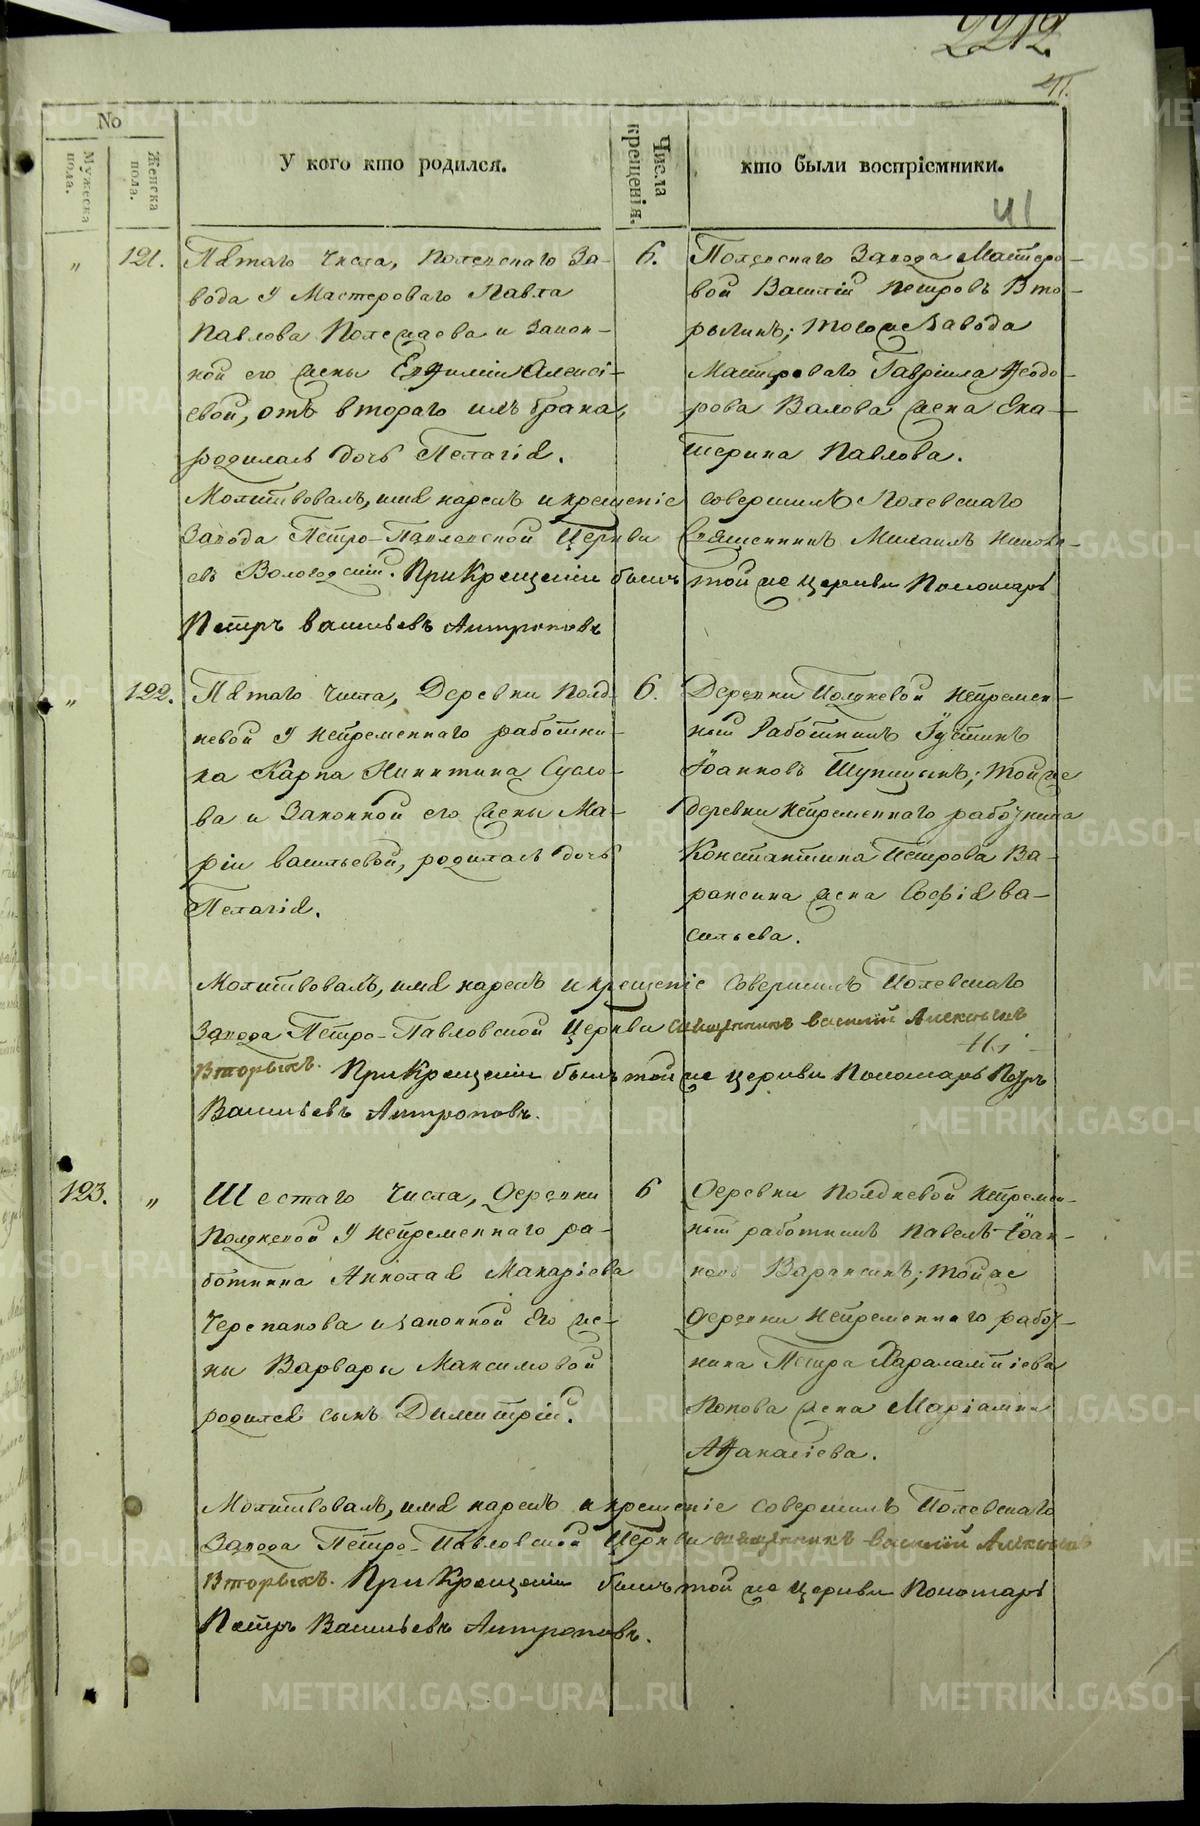 41
No
Мужеска пола.
Женска пола.
У кого кто родился.
Числа крещенія.
кто были воспріемники.
41
„ 121.
Пятаго числа, Полевскаго За-
вода у Мастероваго Павла
Павлова Полежаева и закон-
ной его жены Евфиміи Алексі-
евой, отъ втораго ихъ брака,
родилась дочь Пелагія.
6.
Полевскаго Завода Мастеро-
вой Василій Петровъ Вто-
рыхинъ; тогоже Завода
Мастероваго Гавріила Ѳеодо-
рова Валова жена Ека-
терина Павлова.
Молитвовалъ, имя нарекъ и крещеніе совершилъ Полевскаго
Завода Петро-Павловской Церкви Священникъ Михаилъ
Вологодскій. При Крещеніи былъ той же церкви Пономарь
Петръ Васильевъ Антроповъ
„ 122.
Пятаго числа, Деревни Полд-
невой у непременнаго работни-
ка Карпа Никитина Сусло-
ва и Законной его жены Ма-
ріи Васильевой, родилась дочь
Пелагія.
6.
Деревни Полдневой непремен-
ной Работникъ Іустинъ
Іоанновъ Шупицынъ; тойже
деревни непременнаго работника
Константина Петрова Ва-
раксина жена Софія Ва-
сильева.
Молитвовалъ, имя нарекъ и крещеніе Совершилъ Полевскаго
Завода Петро-Павловской Церкви священникъ Василій Алексѣевъ
Вторыхъ. При Крещеніи былъ той же церкви Пономарь Петръ
Васильевъ Антроповъ.
123. „
Шестаго числа, Деревни
Полдневой у непременнаго ра-
ботника Николая Макаріева
Черепанова и законной Его же-
ны Варвары Максимовой
родился сынъ Димитрій.
6
Деревни Полдневой непремен-
ной работникъ Павелъ Іоан-
новъ Вараксинъ; тойже
деревни непременнаго работ-
ника Петра Харалампіева
Попова жена Маріамна
Аѳанасіева.
Молитвовалъ, имя нарекъ и крещеніе совершилъ Полевскаго
Завода Петро-Павловской Церкви священникъ Василій Алексѣевъ
Вторыхъ. При Крещеніи былъ той же церкви Пономарь
Петръ Васильевъ Антроповъ.
METRIKI.GASO-URAL.RU